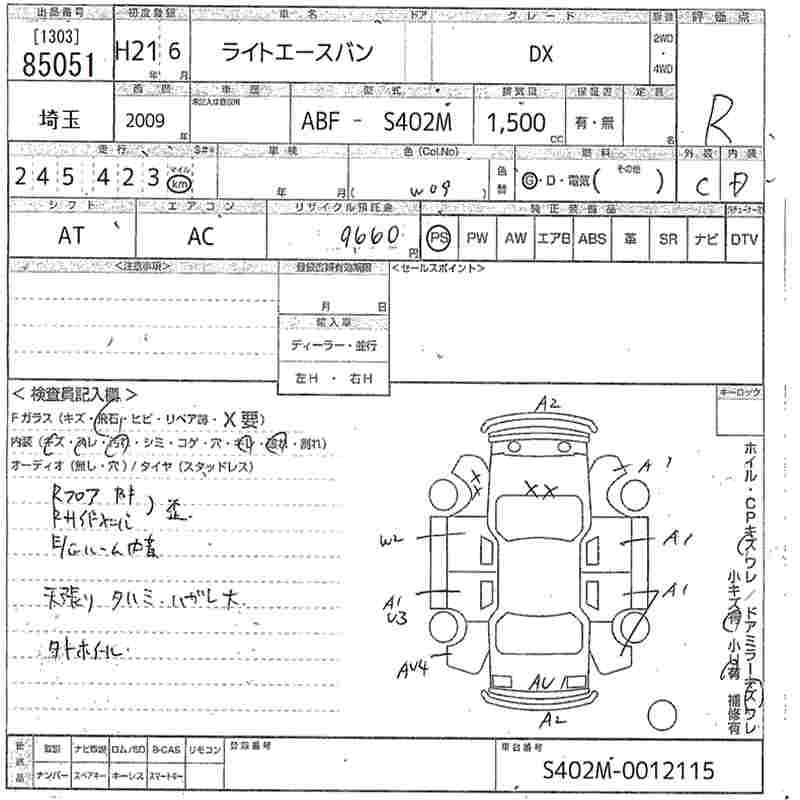 出品番号 初度登録 車名 ドア グレード 評価点
[1303]
85051 H21 6 ライトエースバン DX 2WD
年 月 4WD
車歴 型式 排気量 保証書 定員
埼玉 2009 年 ABF - S402M 1,500 CC 有・無 名 R
走行 車検 色(Col.No) 燃料 外装 内装
245423 マイル km 年 月 ( W09 ) 色替 G・D・電気( その他 ) C D
シフト エアコン リサイクル預託金 純正装備品
AT AC 9660 円 PS PW AW エアB ABS 革 SR ナビ DTV
<注意事項> <セールスポイント>
月 日
輸入車
ディーラー・並行
左H ・ 右H
< 検査員記入欄 > キーロック
Fガラス (キズ・飛石・ヒビ・リペア跡・X要)
シミ・コゲ・穴
割れ)
オーディオ (無し・穴) / タイヤ (スタッドレス)
A2
A1
XX
XX
W2 A1
A1
U3 A1
AU4
AU1
A2
Rフロア
歪
天張り タルミ・ハガレ大
タトホイール
ホイル・CPキズワレ / ドアミラーキズワレ
小キズ有 小U有 補修有
取説 ナビ取説 ロム/SD B-CAS リモコン 登録番号 車台番号
ナンバー スペアキー キーレス スマートキー S402M-0012115